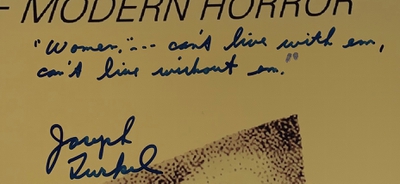 MODERN HORROR
"Women,"... can's live with em,
can's live wishout em."
Joseph
Turkel